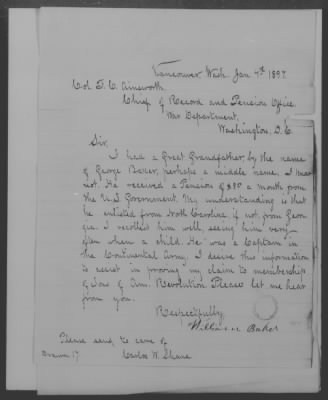 Vancouver, Wash. Jan 7th 1897.
Col. F. C. Ainsworth,
Chief of Record and Pension Office.
War Department,
Washington. D. C.
Sir,
I had a Great Grandfather, by the name
of George Baker, perhaps a middle name. I
not. He received a Pension of $80 a month from
the U.S. Government. My understanding is that
he enlisted from North Carolina if not from Geor
gia. I recollect him well, seeing him very
often when a child. He was a Captain in
the Continental Army. I desire this information
to assist in proving my claim to membership
of Sons of Am. Revolution. Please let me hear
from you.
Respectfully,
William Baker
Please send to care of
Drawer 17. Carlos W. Shane